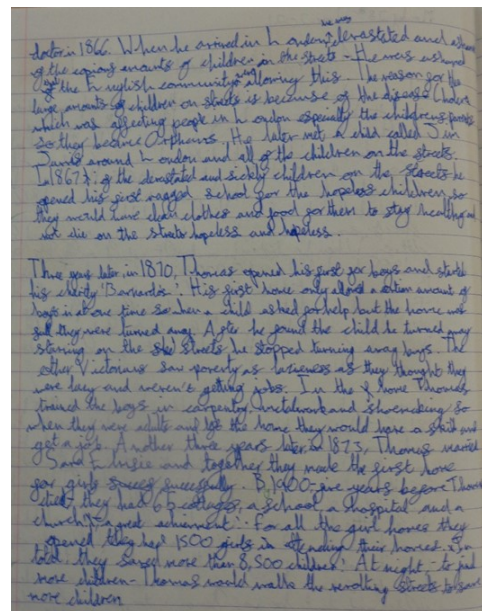 he was
doctor in 1866. When he arrived in London, devastated and
of the copious amounts of children on the streets - He was ashamed
of the English community allowing this. The reason for the
large amounts of children on streets is because of the disease Cholera
which was affecting people in London especially the childrens parents
so they become Orphans. He later met a child called Jim
around London and all of the children on the streets.
In 1867 of the devastated and sickly children on the streets he
opened his first ragged school for the hopeless children, so
they would have clean clothes and food for them to stay healthy and
not die on the streets hopeless and
Three years later, in 1870, Thomas opened his first for boys and started
his charity 'Barnardos'. His first home only allowed a amount of
boys in at one time so when a child asked for help but the home was
full they were turned away. After he found the child he turned away
starving on the streets he stopped turning away boys. The
other Victorians saw poverty as lazieness as they thought they
were lazy and weren't getting jobs. In the home Thomas
trained the boys in carpentry, metalwork and shoemaking so
when they were adults and left the home they would have a skill and
get a job. Another three years later, in 1873, Thomas married
and together they made the first home
for girls successfully. By 1900-five years before Thomas
died, they had 65 cottages, a school, a hospital and a
church - a great achievment! For all the girl homes they
opened they had 1500 girls in attending their homes. In
total, they saved more than 8,500 children! At night - to find
more children - Thomas would walk the revolting streets to save
more children